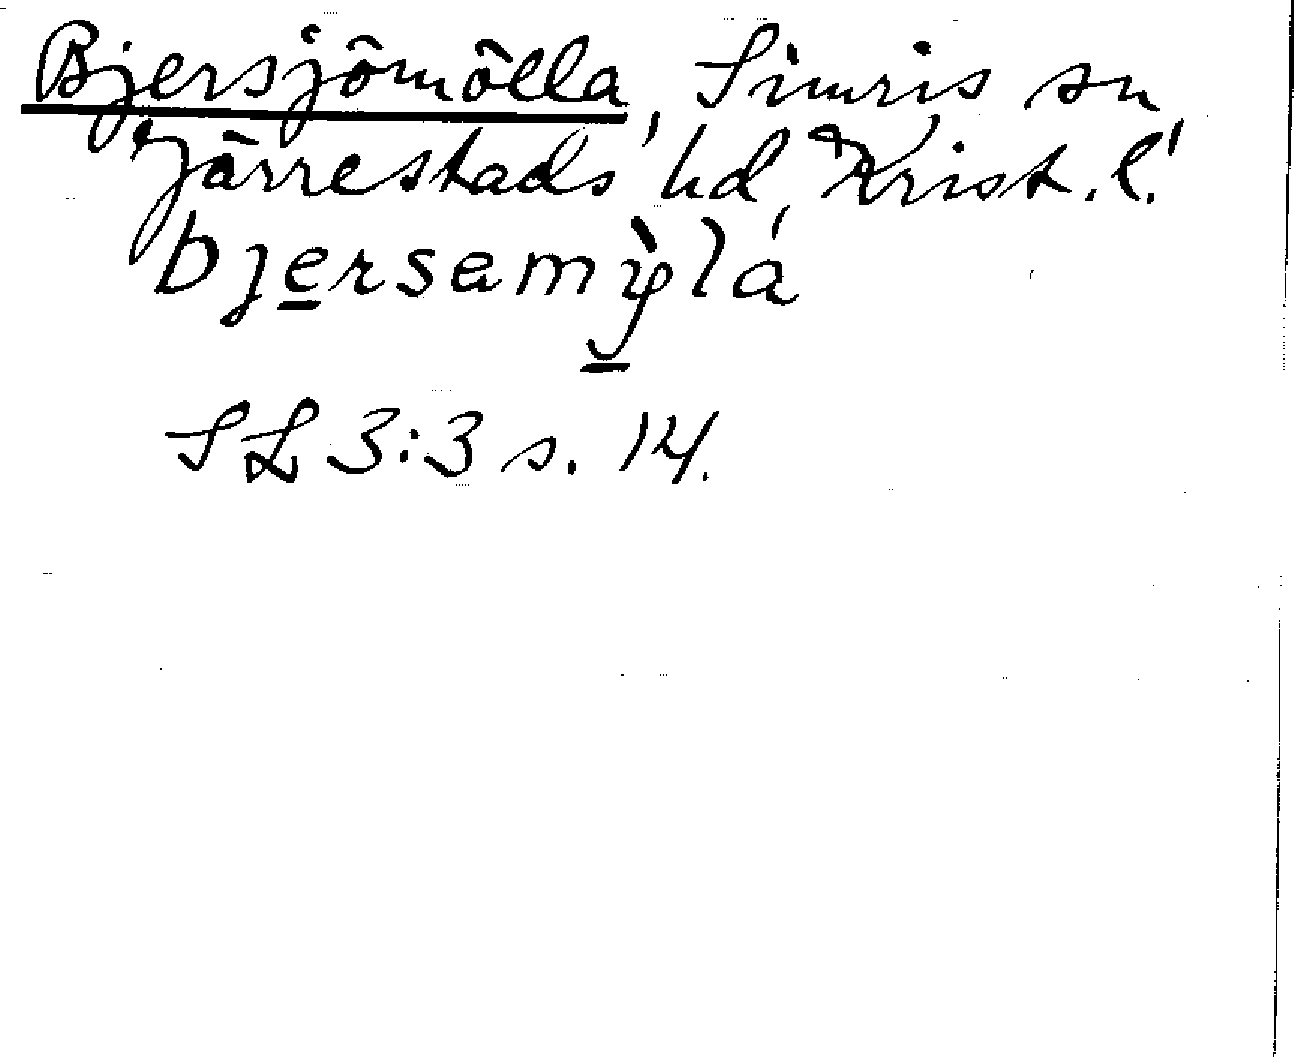 Bjersjömölla, Simris sn,
Järrestads hd, Krist. l.
bjersamỳla
SL 3:3 s. 14.